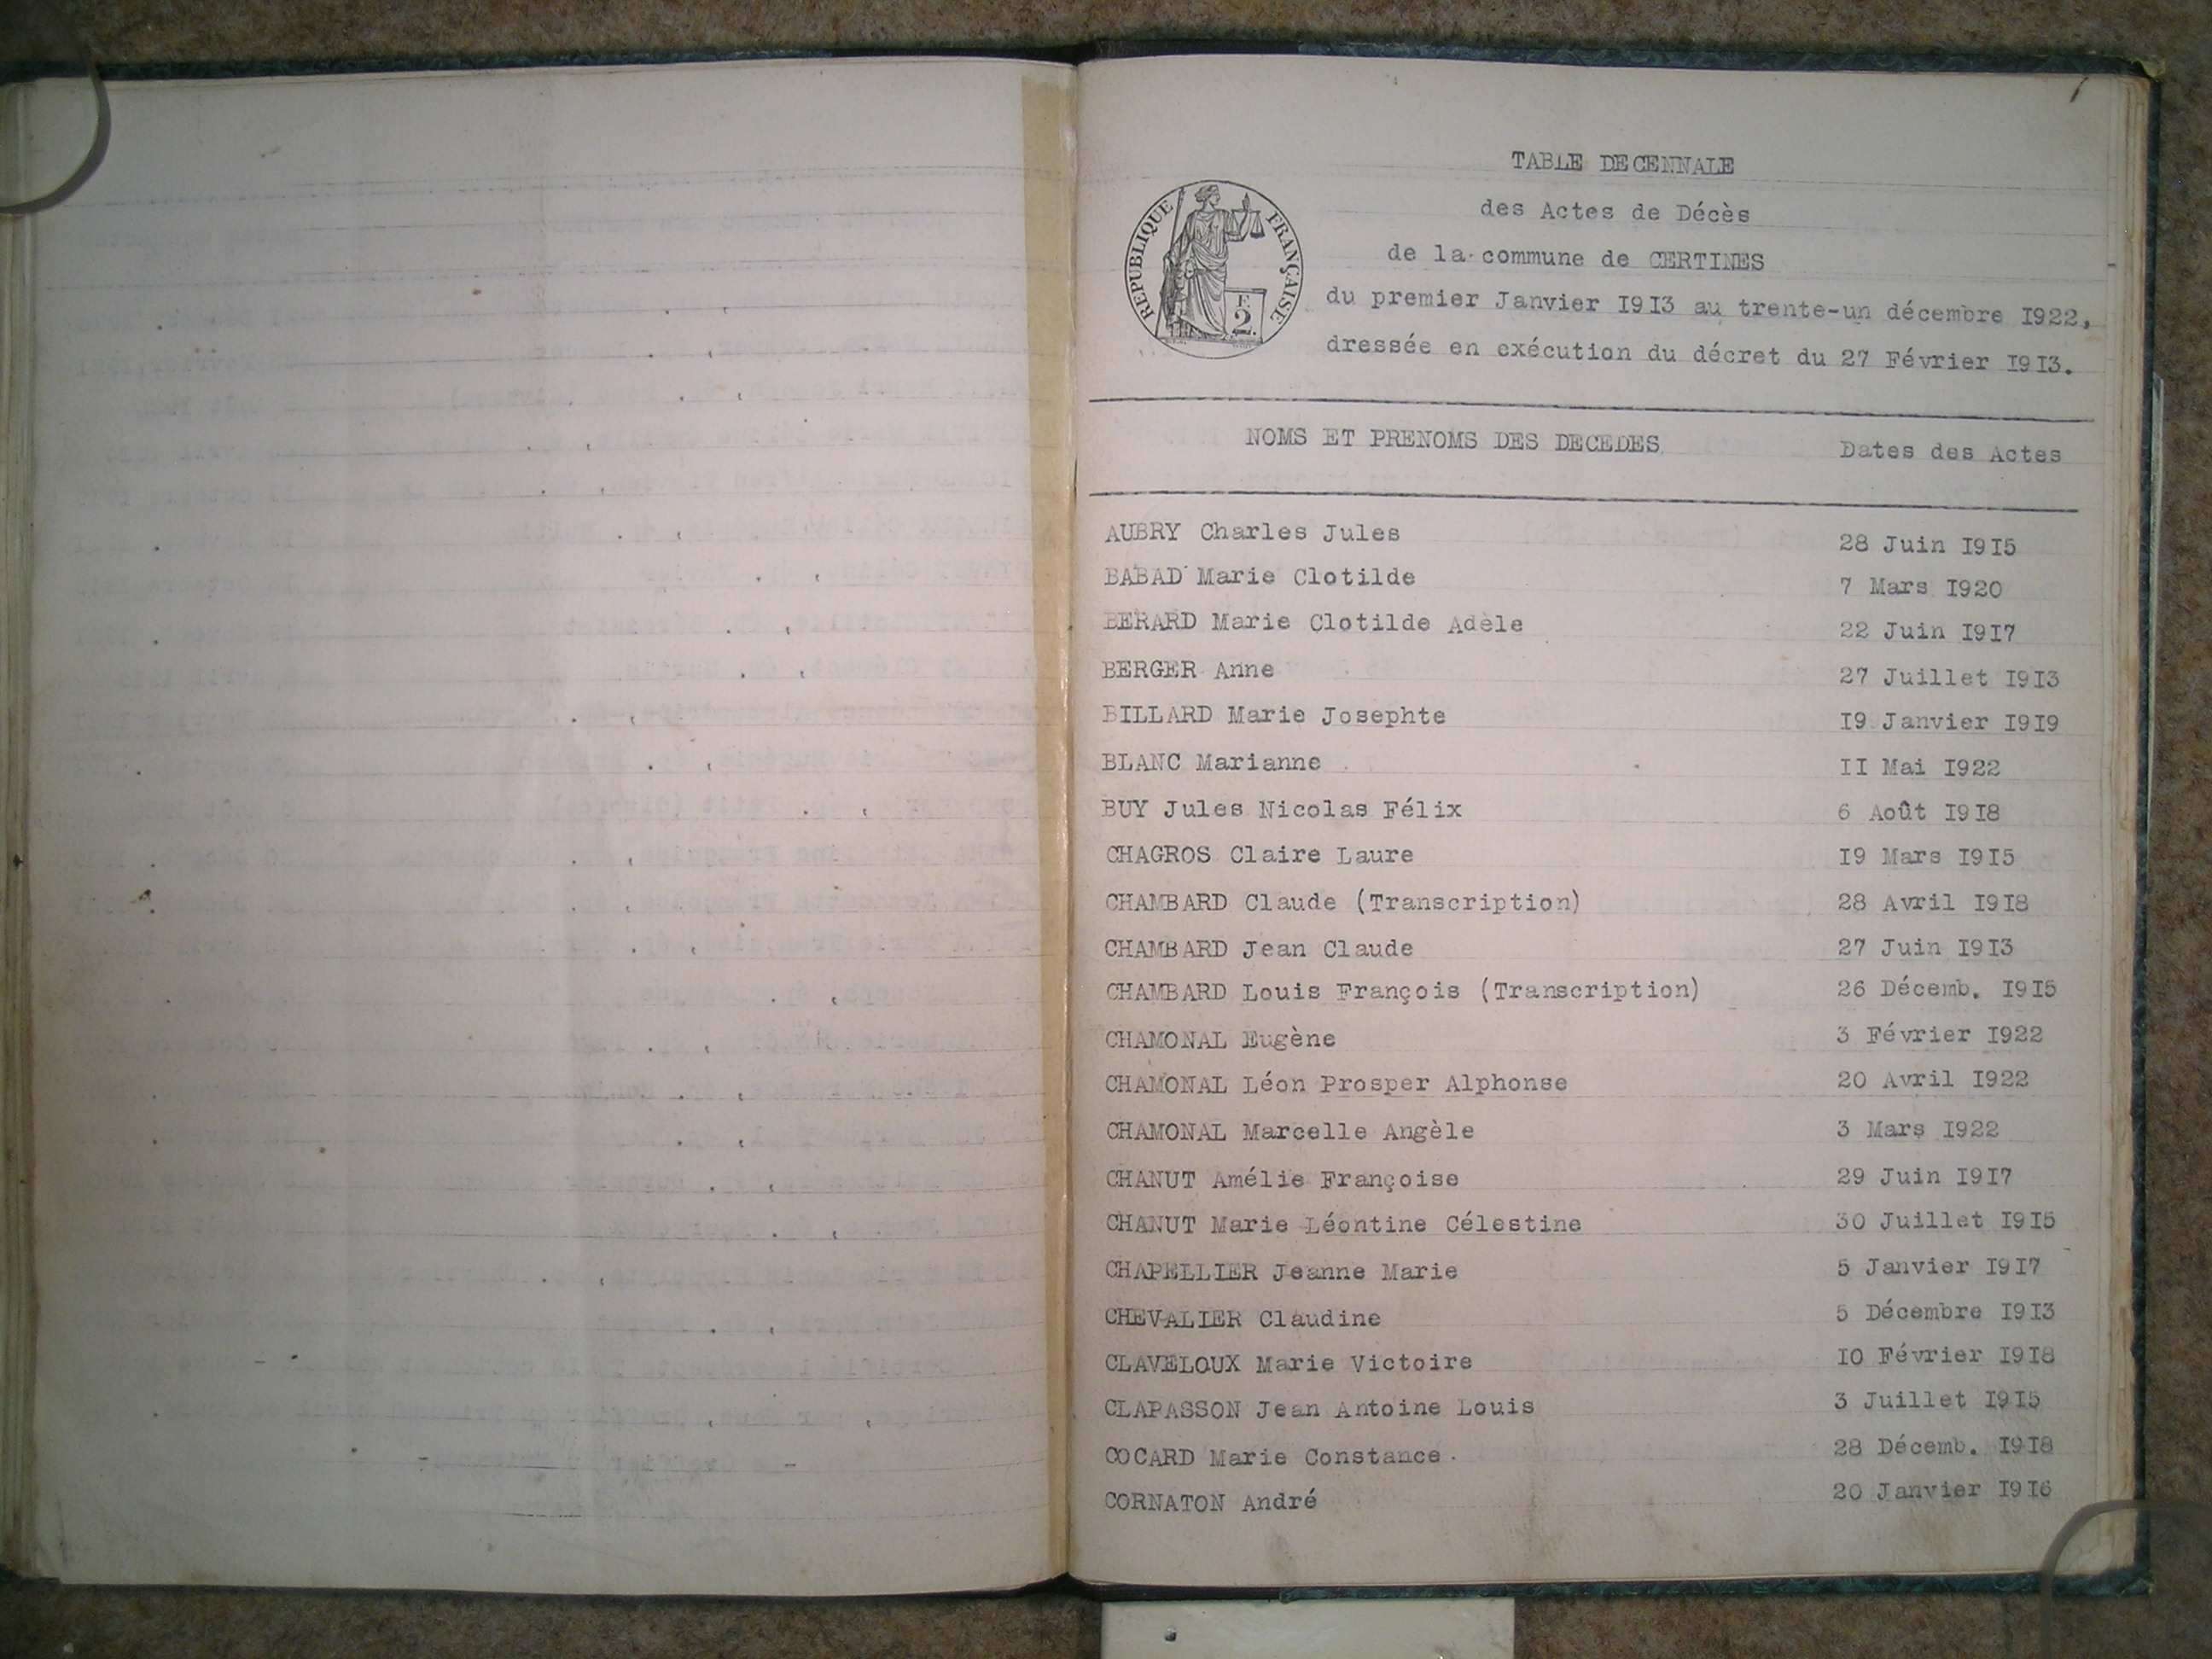 TABLE DECENNALE
des Actes de Décès
de la commune de CERTINES
du premier Janvier 1913 au trente-un décembre 1922,
dressée en exécution du décret du 27 Février 1913.
REPUBLIQUE FRANÇAISE
F.
2
NOMS ET PRENOMS DES DECEDES Dates des Actes
AUBRY Charles Jules 28 Juin 1915
BABAD Marie Clotilde 7 Mars 1920
BERARD Marie Clotilde Adèle 22 Juin 1917
BERGER Anne 27 Juillet 1913
BILLARD Marie Josephte 19 Janvier 1919
BLANC Marianne 11 Mai 1922
BUY Jules Nicolas Félix 6 Août 1918
CHAGROS Claire Laure 19 Mars 1915
CHAMBARD Claude (Transcription) 28 Avril 1918
CHAMBARD Jean Claude 27 Juin 1913
CHAMBARD Louis François (Transcription) 26 Décemb. 1915
CHAMONAL Eugène 3 Février 1922
CHAMONAL Léon Prosper Alphonse 20 Avril 1922
CHAMONAL Marcelle Angèle 3 Mars 1922
CHANUT Amélie Françoise 29 Juin 1917
CHANUT Marie Léontine Célestine 30 Juillet 1915
CHAPELLIER Jeanne Marie 5 Janvier 1917
CHEVALIER Claudine 5 Décembre 1913
CLAVELOUX Marie Victoire 10 Février 1918
CLAPASSON Jean Antoine Louis 3 Juillet 1915
COCARD Marie Constance. 28 Décemb. 1918
CORNATON André 20 Janvier 1916